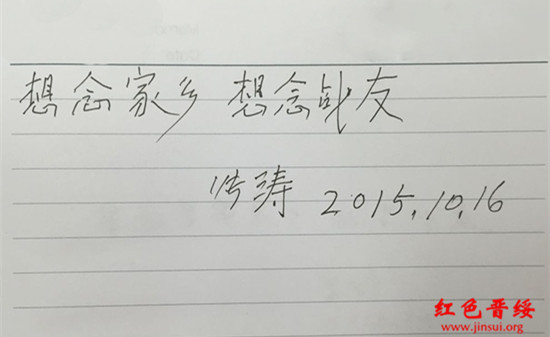 想念家乡 想念战友
传涛 2015.10.16
红色晋绥
www.jinsui.org